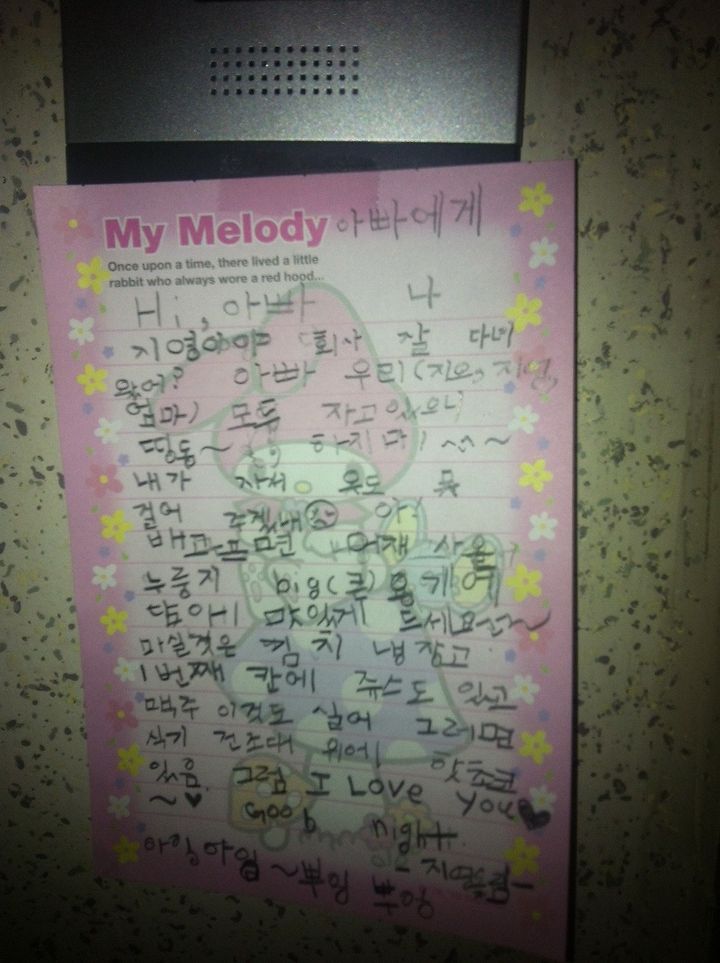 My Melody 아빠에게
Once upon a time, there lived a little
rabbit who always wore a red hood...
Hi, 아빠 나
지영이야 회사 잘 다녀
왔어? 아빠 우리(지요, 지영,
엄마) 모두 자고있으니
띵동~ 하지마! ^^~
내가 자서 옷도 못
걸어 주겠네 아!
배고프면 어재 사온
누룽지 big(큰)용기에
담아 맛있게 드세요~
마실것은 김치 냉장고
1번째 칸에 쥬스도 있고
맥주 이것도 싫어 그러면
식기 건조대 위에 핫초코
있음. 그럼 I Love You♥
~♥ Good night.
-지영올림-
~뿌잉 뿌잉